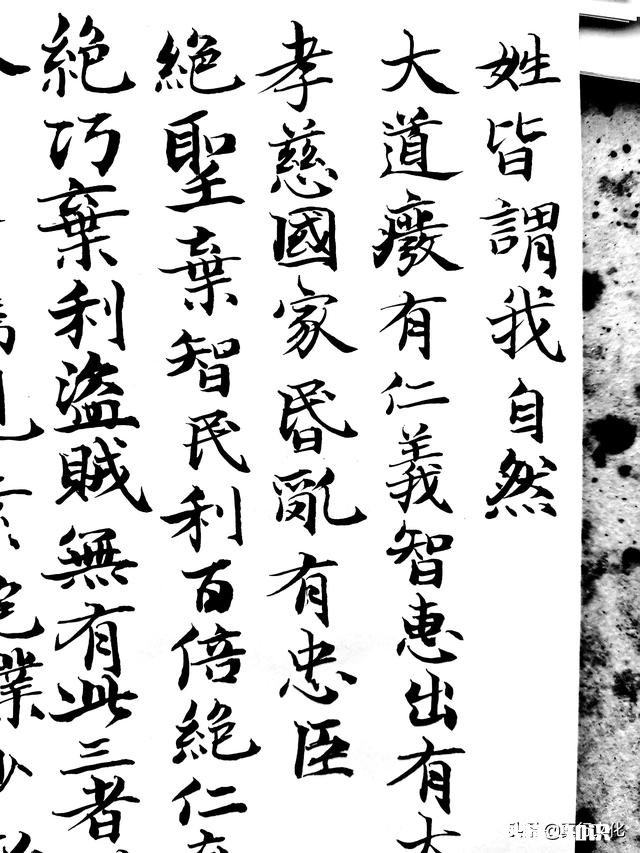 姓皆謂我自然
大道廢有仁義智惠出有大
孝慈國家昏亂有忠臣
絕聖棄智民利百倍絕仁
絕巧棄利盜賊無有此三者
頭條 @